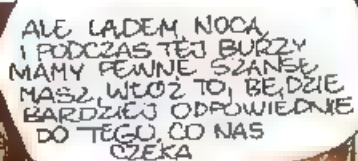 ALE LĄDEM, NOCĄ,
I PODCZAS TEJ BURZY
MAMY PEWNE SZANSE,
MASZ, WŁÓŻ TO, BĘDZIE
BARDZIEJ ODPOWIEDNIE
DO TEGO, CO NAS
CZEKA